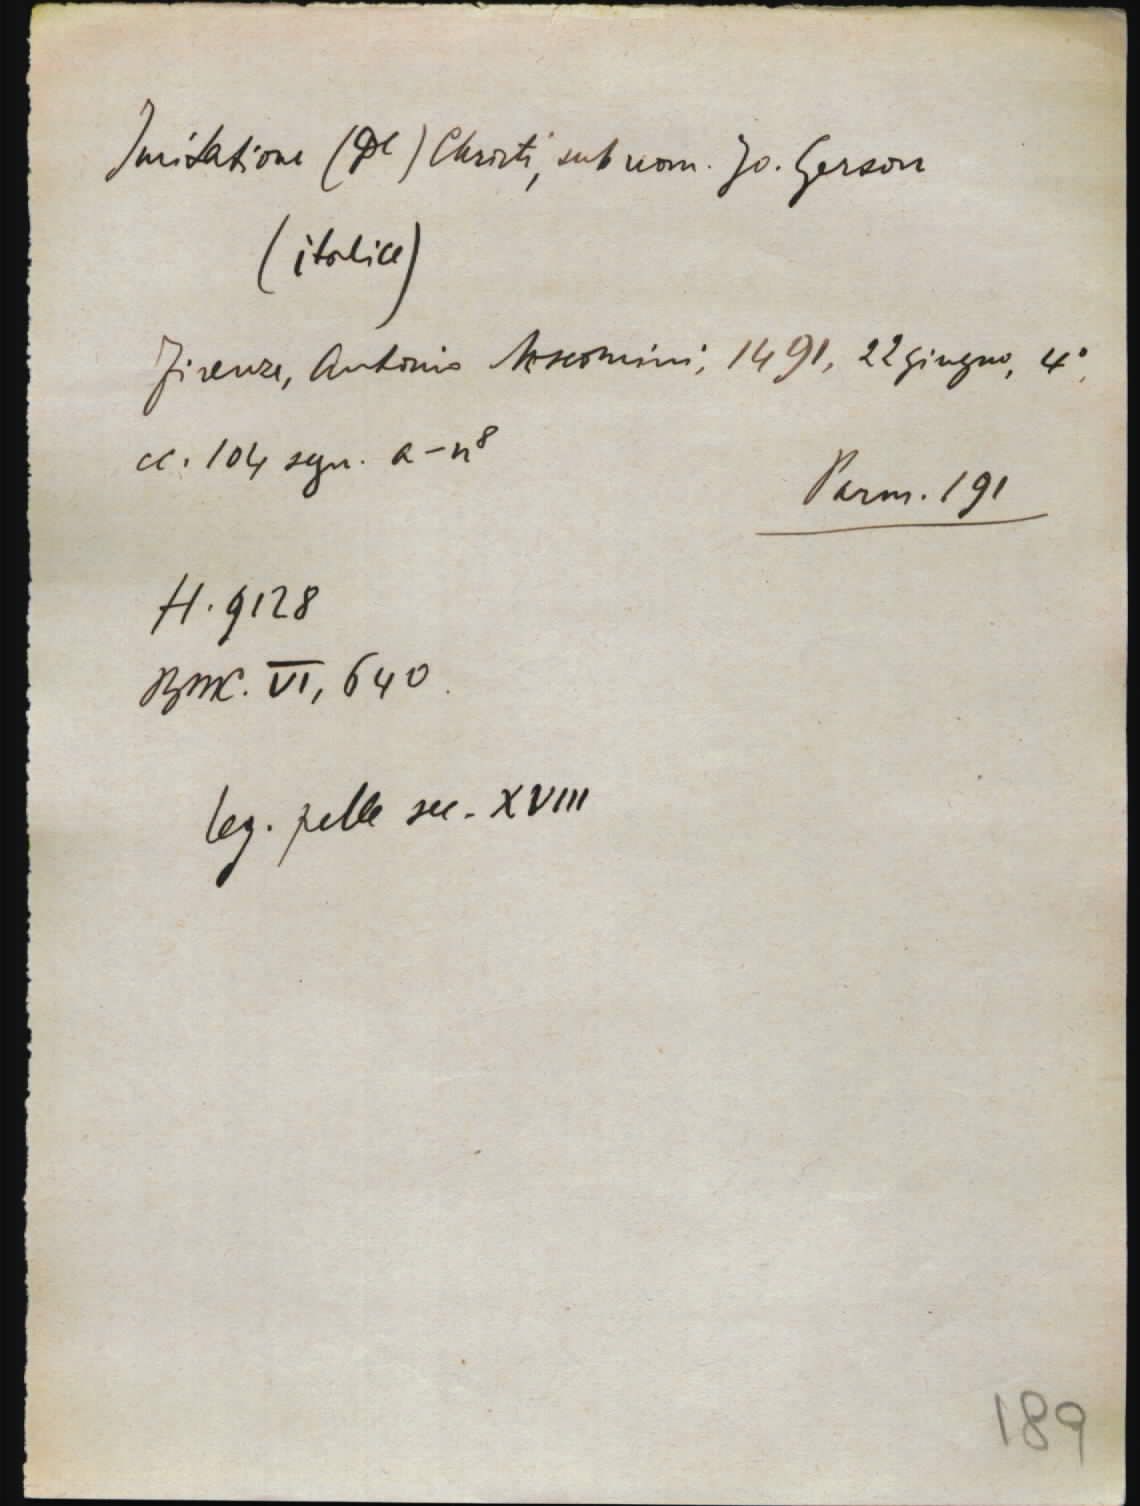 Imitatione (De) Christi, sub nom. Jo. Gerson
(italice)
Firenze, Antonio Miscomini, 1491, 22 giugno, 4°,
cc. 104 segn. a-n⁸
Parm. 191
H. 9128
BMC. VI, 640.
leg. pelle sec. XVIII
189